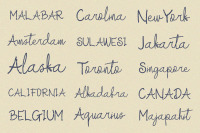 MALABAR Carolma New York
Amsterdam SULAWESI Jakarta
Alaska Toronto Singapore
CALIFORNIA Alkadabra CANADA
BELGIUM Aquarius Majapahit